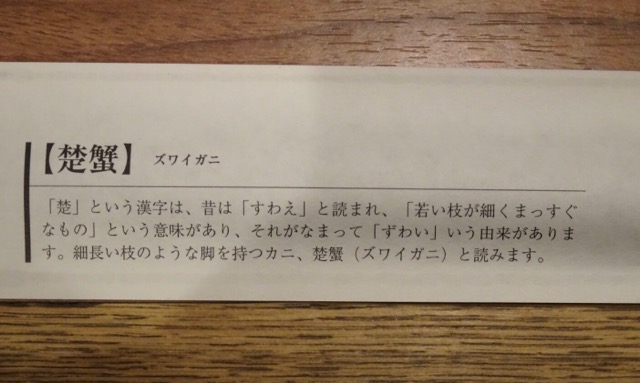 【楚蟹】 ズワイガニ
「楚」という漢字は、昔は「すわえ」と読まれ、「若い枝が細くまっすぐ
なもの」という意味があり、それがなまって「ずわい」いう由来がありま
す。細長い枝のような脚を持つカニ、楚蟹（ズワイガニ）と読みます。